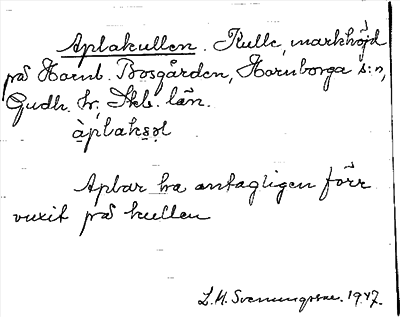 Aplakullen. Kulle, markhöjd
på Hornb. Bosgården, Hornborga s:n,
Gudh. hr, Skb. län.
àplaks̱ə̣l
Aplar ha antagligen förr
vuxit på kullen
L. H. Svenungsson. 1947.